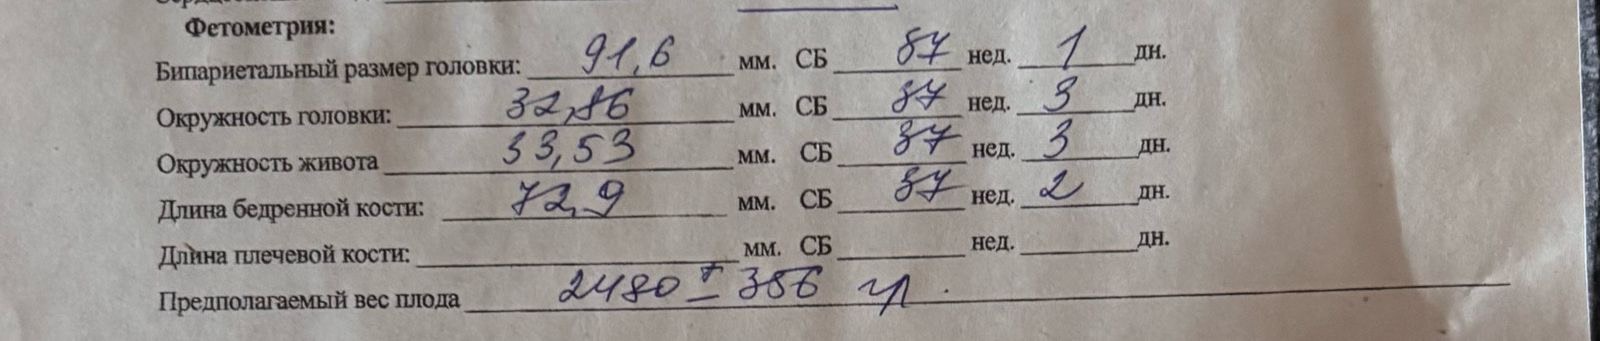 Фетометрия:
Бипариетальный размер головки: 91,6 мм. СБ 37 нед. 1 дн.
Окружность головки: 32,86 мм. СБ 37 нед. 3 дн.
Окружность живота 33,53 мм. СБ 37 нед. 3 дн.
Длина бедренной кости: 72,9 мм. СБ 37 нед. 2 дн.
Длина плечевой кости: мм. СБ нед. дн.
Предполагаемый вес плода 2480 ± 356 гр.